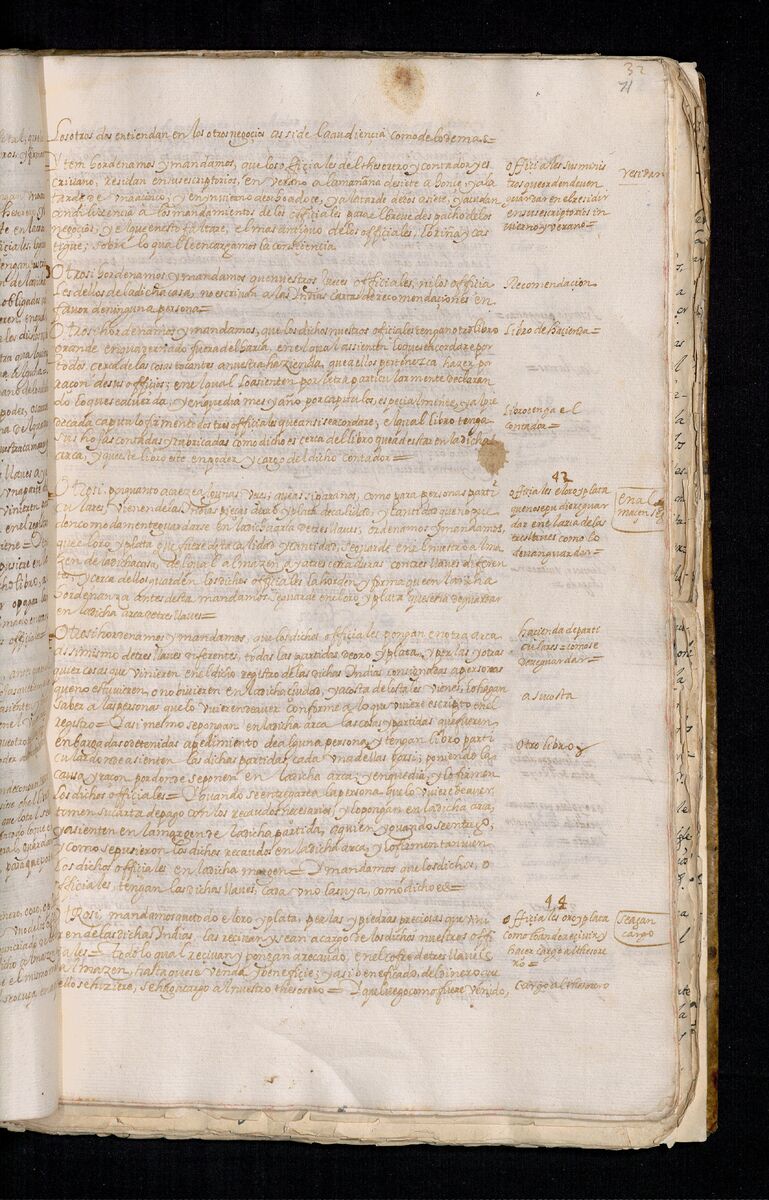 32
71
Los otros dos entiendan en los otros negocios assi de la audiencia como de lo demas=
Y tem hordenamos y mandamos, que los officiales del thesorero y contador y es
criuano, residan en sus escriptorios, en verano a la mañana de siete a honze, y a la
tarde de
y en invierno de ocho a doce, y a la tarde de dos a siete, y acudan
con diligencia a los mandamientos de los officiales para el breue despacho de los
negocios, y el que en esto faltare, el mas antiguo de los officiales, lo riña y cas
tigue; sobre lo qual le encargamos la consciencia
Otrosi hordenamos y mandamos que nuestros Jueces officiales, ni los officia
les dellos de la dicha casa, no escriuan a las Indias cartas de recomendaciones en
fauor de ninguna persona=
Otrosi hordenamos y mandamos, que los dichos nuestros officiales tengan otro libro
grande enquadernado fuera del arca, en el qual assienten lo que se acordare por
todos, cerca de las cosas tocantes a nuestra hazienda, que a ellos pertenezca hazer por
racon de sus officios; en el qual lo asienten por letra particularmente declaran
do lo que se acuerda, y en que dia mes y año por capitulos especialmente, y al pie
de cada capitulo firmen todos tres officiales que ansi se acordare, el qual libro tenga
sus hojas contadas y rubricadas como dicho es cerca del libro que a de estar en la dicha
arca, y que este libro este en poder y cargo del dicho contador=
Otrosi, porquanto acaeze algunas vezes, que assi para nos, como para personas parti
culares vienen de las Indias piezas de oro y plata de calidad, y cantidad que no pue
den comodamente guardarse en la dicha arca de tres llaues, ordenamos y mandamos,
que el oro y plata que fuere de tal calidad y cantidad, se guarde en el nuestro alma
zen de la dicha casa, del qual almazen aya tres cerraduras con tres llaues diferen
tes, y cerca de los guarden los dichos officiales la horden y forma que en la dicha
hordenanza antes desta mandamos guarde en el oro y plata que se a de guardar
en la dicha arca de tres llaues=
Otrosi hordenamos y mandamos, que los dichos officiales pongan en otra arca
assimismo de tres llaues diferentes, todas las partidas de oro y plata, y perlas y otras
quier cosas que vinieren en el dicho registro de las dichas Indias consignadas a personas
que no estuuieren, o no biuieren en la dicha ciudad, y a costa de los tales vienes, lo hagan
saber a las personas que lo vuieren de auer conforme a lo que viniere escripto en el
registro= Y asimesmo se pongan en la dicha arca las cosas y partidas que fueren
embargadas o detenidas a pedimiento de alguna persona, y tengan libro parti
cular donde asienten las dichas partidas, cada una dellas por si; poniendo la
causa y racon por donde se ponen en la dicha arca; y en que dia, y lo firmen
los dichos officiales= Y quando se entregare a la persona que lo vuiere de auer,
tomen su carta de pago con los recaudos necesarios, y lo pongan en la dicha arca,
y asienten en la margen de la dicha partida, a quien y quando se entrego,
y como se pusieron los dichos recaudos en la dicha arca, y lo firmen tambien
los dichos officiales en la dicha margen= Y mandamos que los dichos o
fficiales, tengan las dichas llaues, cada vno la suya, como dicho es=
Otrosi, mandamos que todo el oro y plata, perlas y piedras preciosas que vini
eren de las dichas Indias las reciuan y sean a cargo de los dichos nuestros offi
ciales= Todo lo qual reciuan y pongan a recaudo, en el cofre de tres llaues
almazen, hasta que se venda y beneficie; y asi beneficado, del dinero que
dello se hiziere, se haga cargo al nuestro thesorero= Y que luego como fuere venido,
officiales sus minis
tros que orden deuen
guardar en el residir
en sus escriptorios in
uierno y verano=
residan
Recomendacion
Libro de hazienda=
Libro tenga el
contador=
43
officiales el oro y plata
que no se pudiere guar
dar en el arca de las
tres llaues como lo
deuen guardar=
en al
hazienda de parti
culares= como se
de guardar=
a su costa
Otro libro
44
officiales oro y plata
como han de reciuir, y
hazer cargo al thesore
ro=
sea a
cargo
Cargo al thesorero